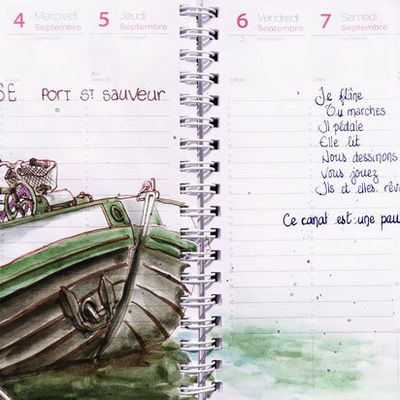 4 Mercredi
Septembre
5 Jeudi
Septembre
6 Vendredi
Septembre
7 Samedi
Septembre
PORT St SAUVEUR
Je flâne
Tu marches
Il pédale
Elle lit
Nous dessinons
Vous jouez
Ils et elles rêv
Ce canal est une pau